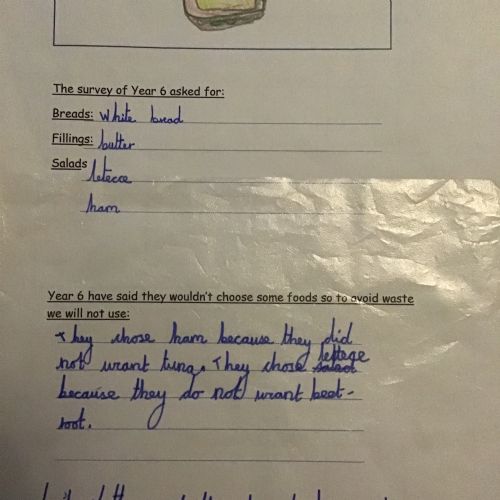 The survey of Year 6 asked for:
Breads: white bread
Fillings: butter
Salads letecce
ham
Year 6 have said they wouldn't choose some foods so to avoid waste
we will not use:
They chose ham because they did
not want tuna. They chose lettege
because they do not want beet-
root.